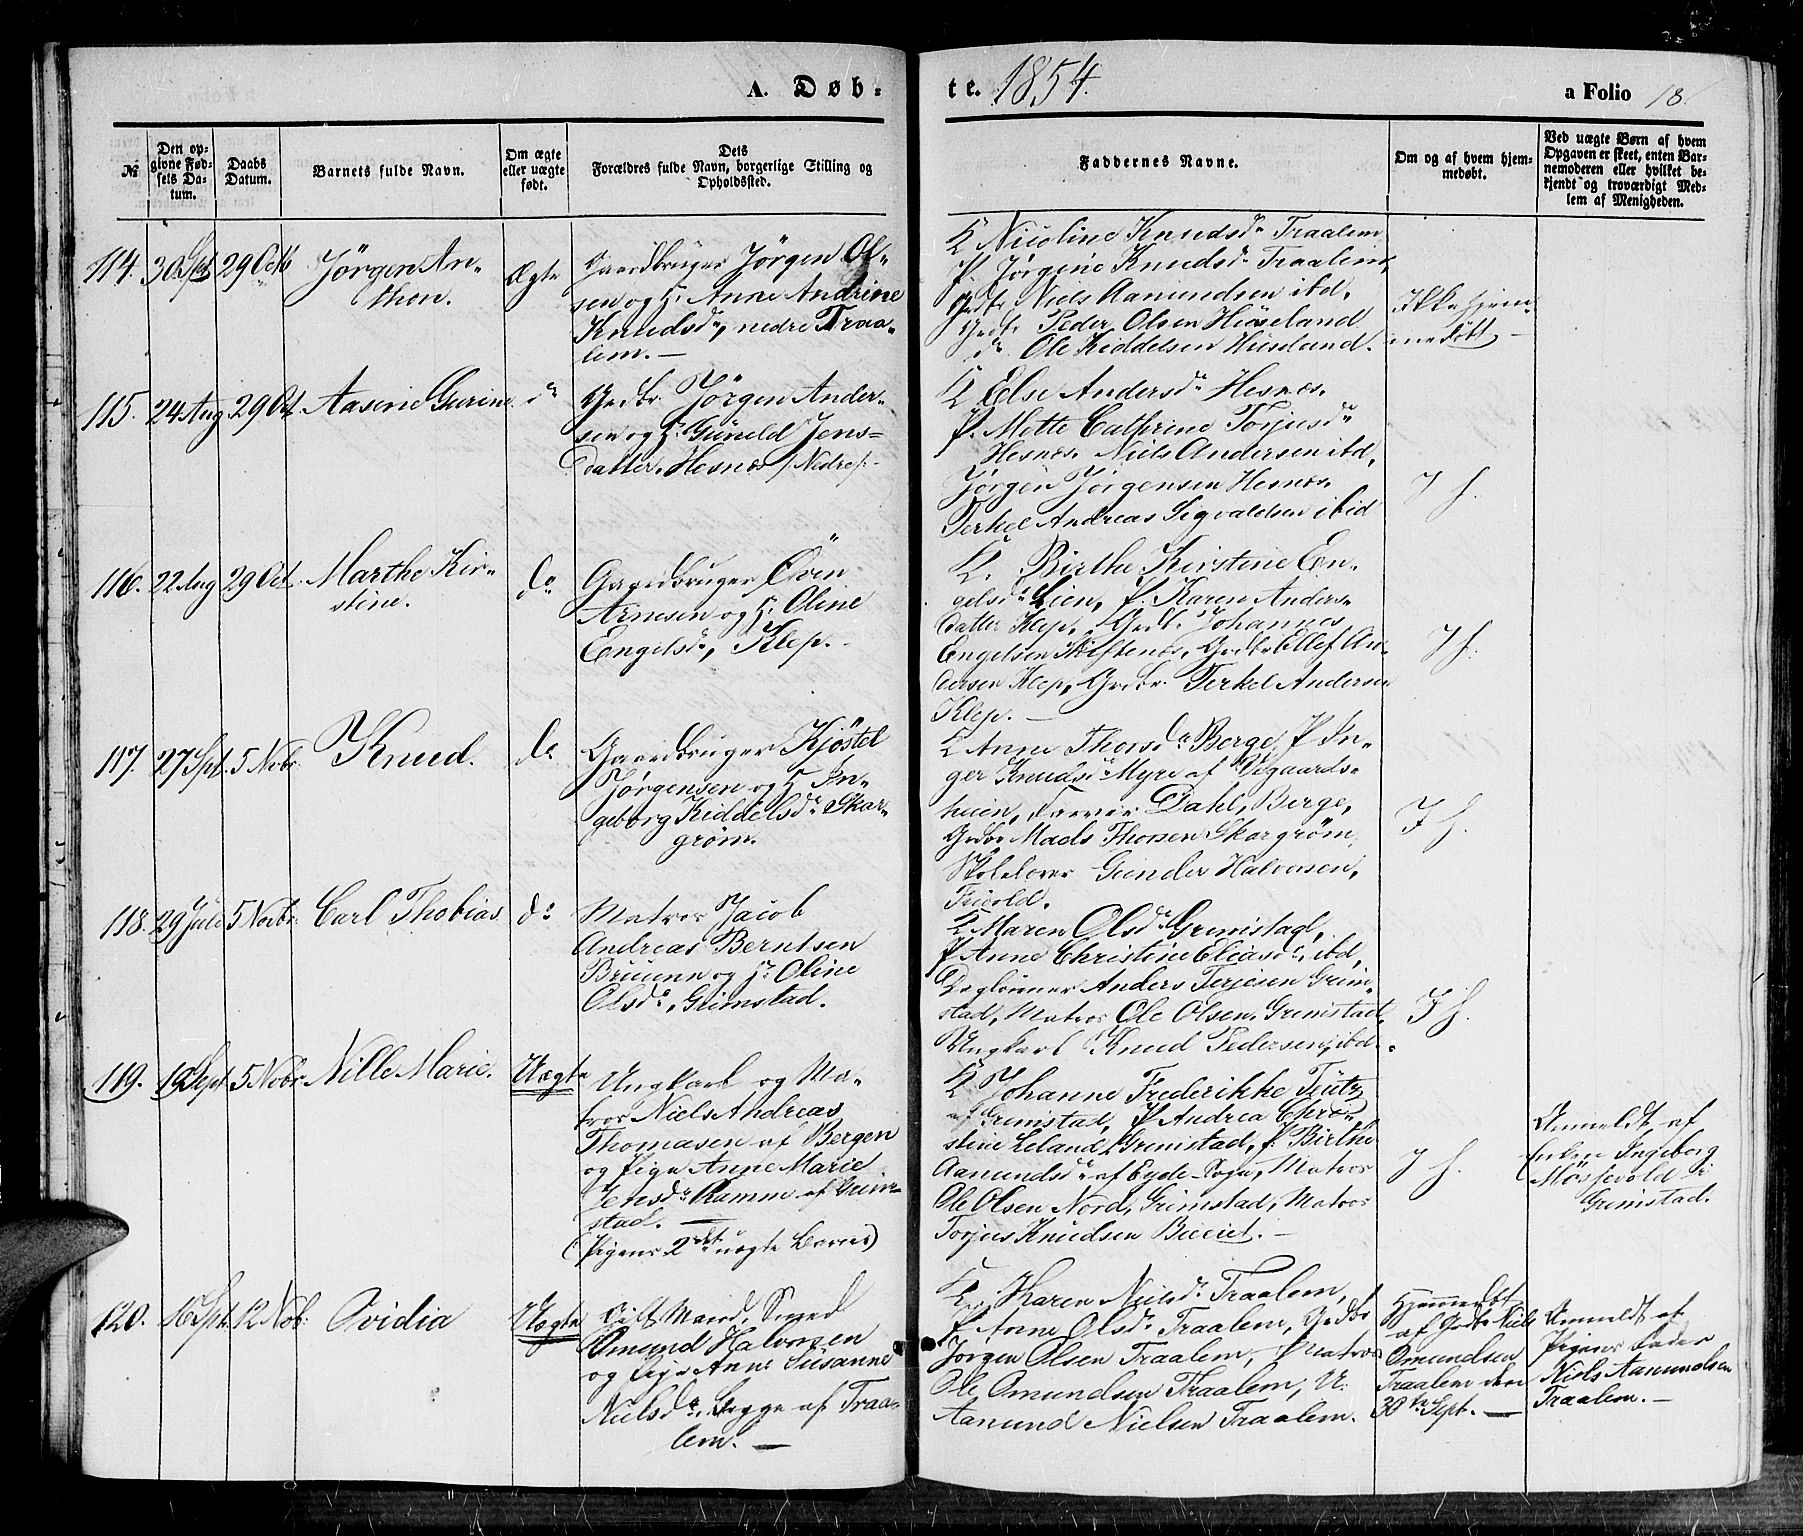 A. Døb-
te. 1854.
a Folio 18
№
Den op-
givne Fød-
sels Da-
tum.
Daabs
Datum.
Barnets fulde Navn.
Om ægte
eller uægte
født.
Dets
Forældres fulde Navn, borgerlige Stilling og
Opholdssted.
Faddernes Navne.
Om og af hvem hjem-
medøbt.
Ved uægte Børn af hvem
Opgaven er skeet, enten Bar-
nemoderen eller hvilket be-
kjendt og troværdigt Med-
lem af Menigheden.
114. 30 Spt 29 Octb Jörgen An-
thon.
Ægte
Gaardbruger Jörgen Ol-
sen og H. Anne Andrine
Knudsdr, nedre Traa-
lem. —
K Nicoline Knudsdr Traalem
P. Jörgine Knudsdr Traalem,
Grdbr Niels Aamundsen ibd,
Grdbr Peder Olsen Höseland
do Ole Kiddelsen Huseland.
Ikke hjem-
medöbt —
115. 24 Aug 29 Oct. Aasene Gurine
do
Grdbr. Jörgen Ander-
sen og H. Gunild Jens-
datter, Hesnæs /Nedre/.-
K Else Andersdr Hesnæs.
P. Mette Cathrine Torjusdr
Hesnæs. Niels Andersen ibd,
Jörgen Jörgensen Hesnæs.
Terkel Andreas Sigvaldsen ibid
I h.
116. 22 Aug 29 Oct. Marthe Kir-
stine.
do
Gaardbruger Öven
Arnesen og H. Oline
Engelsdr, Klep. -
K. Birthe Kirstine En-
gelsdr Lien, P. Karen Anders-
datter Klep, Grdb. Johannes
Engelsen Skiftenæs, Grdbr Ellef An-
dersen Klep, Grdbr. Terkel Andersen
Klep. —
I h.
117. 27 Spt. 5 Nobr. Knud.
do
Gaardbruger Kjöstel
Jörgensen og H In-
geborg Kiddelsdr Skar-
gröm.
K Anne Thorsdr Berge, P In-
ger Knudsdr Myre af Vegaards-
heien, Dahl, Berge,
Grdbr Mads Thorsen Skargröm,
Skolelærer Gunder Halvorsen,
Fuvold.
I h.
118. 29 Juli 5 Novbr. Carl Thobias
do
Matros Jacob
Andreas Berntsen
Bruun og H. Oline
Olsdr, Grimstad.
K Maren Olsdr Grimstad,
P Anne Christine Eliasdr, ibd,
Daglönner Anders Terjesen Grim-
stad, Matros Ole Olsen, Grimstad,
Ungkarl Knud Pedersen, ibd.
I h.
119. 19 Sept. 5 Nobr Nille Marie.
Uægte
Ungkarl og Ma-
tros Niels Andreas
Thomasen af Bergen
og Pige Anne Marie
Jensdr Ramm af Grim-
stad. —
(Pigens 2det uægte Barn)
K Johanne Frederikke Tütz
af Grimstad, P Andrea Chri-
stine Leland, Grimstad, P Birthe
Aamundsdr af Eyde Sogn, Matros
Ole Olsen Nord, Grimstad, Matros
Torjus Knudsen Bieiet. —
I h.
Anmeldt af
Enken Ingeborg
Mösfevold i
Grimstad.
120. 16 Spt. 12 Nob: Ovidia
Uægte
Gift Mand, Smed
Omund Halvorsen
og Pige Anne Susanne
Nielsdr, begge af Traa-
lem. —
K. Karen Nielsdr Traalem,
P Anne Olsdr Traalem, Grdbr
Jörgen Olsen Traalem, Matros
Ole Omundsen Traalem, U.
Aamund Nielsen Traalem.
Hjemmedöbt
af Grdbr Niels
Omundsen
Traalem den
30te Sept. —
Anmeldt af
Pigens Fader
Niels Aamundsen
Traalem. —